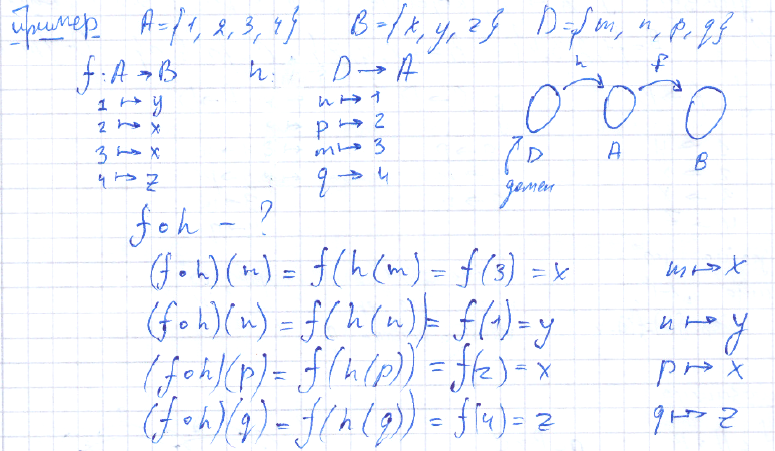 Пример A={1, 2, 3, 4} B={x, y, z} D={m, n, p, q}
f: A → B h: D → A
1 ↦ y n ↦ 1
2 ↦ x p ↦ 2
3 ↦ x m ↦ 3
4 ↦ z q → 4
h f
D A B
домен
f∘h – ?
(f∘h)(m) = f(h(m) = f(3) = x m ↦ x
(f∘h)(n) = f(h(n)) = f(1) = y n ↦ y
(f∘h)(p) = f(h(p)) = f(2) = x p ↦ x
(f∘h)(q) = f(h(q)) = f(4) = z q ↦ z